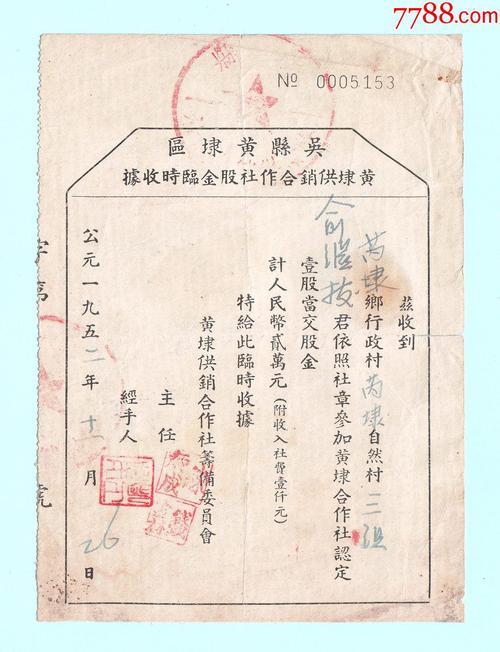 7788.com
№ 0005153
吳縣黃埭區
黃埭供銷合作社股金臨時收據
茲收到
芮埭鄉行政村芮埭自然村三組
俞繼按君依照社章參加黃埭合作社認定
壹股當交股金
計人民幣貳萬元(附收入社費壹仟元)
特給此臨時收據
黃埭供銷合作社籌備委員會
主任
經手人
公元一九五二年十二月26日
字第 號